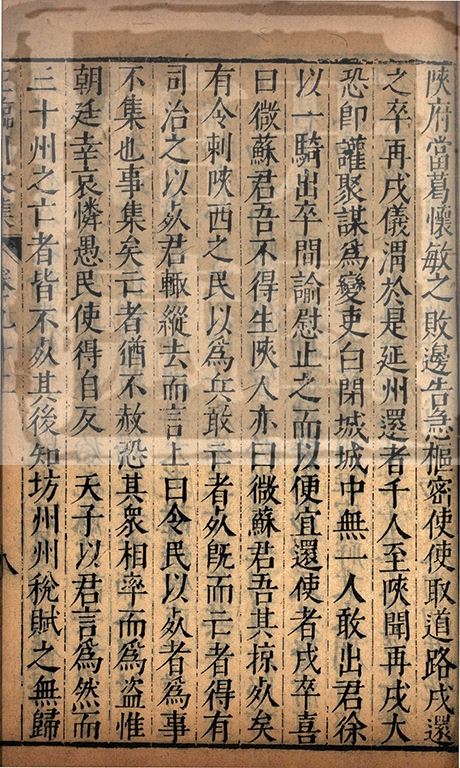 陝府當葛懷敏之敗邊告急樞密使使取道路戍還
之卒再戍儀渭於是延州還者千人至陝聞再戍大
恐即讙聚謀爲變吏白閉城城中無一人敢出君徐
以一騎出卒間諭慰止之而以便宜還使者戍卒喜
曰微蘇君吾不得生陝人亦曰微蘇君吾其掠死矣
有令刺陝西之民以爲兵敢亡者死既而亡者得有
司治之以死君輙縱去而言上曰令民以死者爲事
不集也事集矣亡者猶不赦恐其衆相率而爲盜惟
朝廷幸哀憐愚民使得自反　天子以君言爲然而
三十州之亡者皆不死其後知坊州州稅賦之無歸
王臨川文集 卷九十二 八